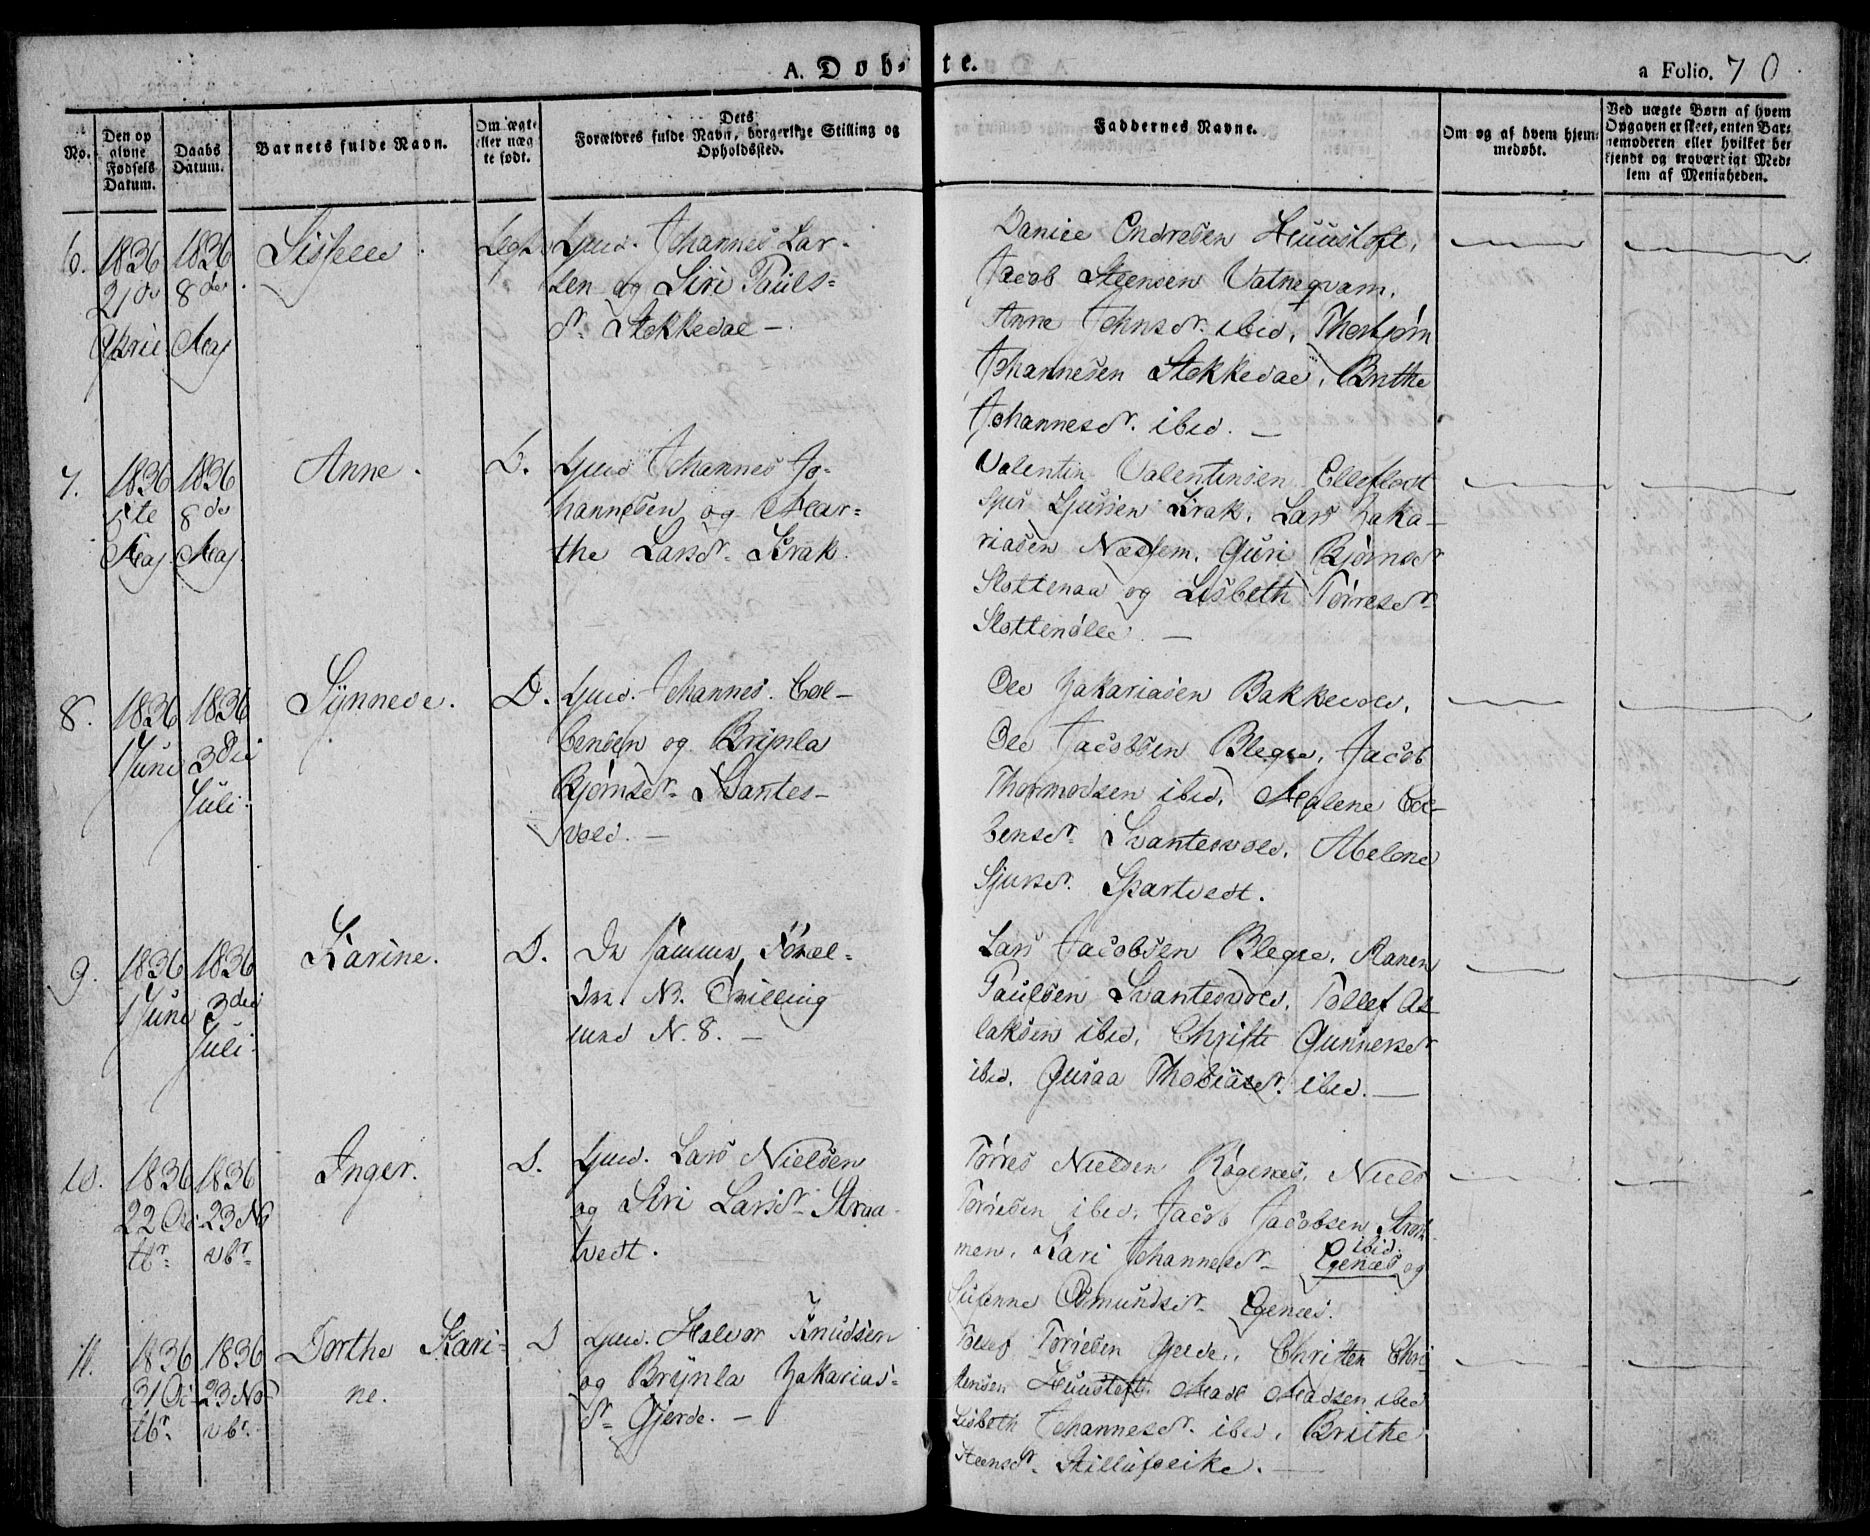 A. Døb-
te.
a Folio. 70
No.
Den op
givne
Fødsels
Datum.
Daabs
Datum.
Barnets fulde Navn.
Om ægte
eller uæg
te født.
Dets
Forældres fulde Navn, borgerlige Stilling og
Opholdssted.
Faddernes Navne.
Om og af hvem hjem-
medøbt.
Ved uægte Børn af hvem
Opgaven er skeet, enten Bar-
nemoderen eller hvilket be
kjendt og troværdigt Med-
lem af Menigheden.
6.
1836
21de
April
1836
8de
Maj
Sissele
Johannes Lar-
sen og Siri Pauls-
dr. Stokkedal -
Daniel Endresen Huustoft,
Jacob Steensen Vatneqvam.
Anne Johnsdr. ibid. Thorbjørn
Johannesen Stokkedal, Brithe
Johannesdr. ibid. -
7.
1836
5te
Maj
1836
8de
Maj
Anne.
D.
Gmd. Johannes Jo-
hannesen og Mar-
the Larsdr. Krak.
Valentin Valentinsen
Krak. Lars Zaka-
riasen Næssem. Guri Bjørnsdr
Slottenaa og Lisbeth Tørresdr
-
8.
1836
1 Juni
1836
3die
Juli
Synneve.
D.
Gmd. Johannes Col-
bensen og Brynla
Bjørnsdr. Svantes-
vold. -
Ole Zakariasen Bakkevold,
Ole Jacobsen Blegee, Jacob
Thormodsen ibid, Malene Col-
bensdr. Svantesvold, Abelone
Sjursdr. Spartvedt.
9.
1836
1 Juni
1836
3die
Juli
Karine.
D.
De samme Foræl-
dre. NB. Tvilling
med N. 8. -
Lars Jacobsen Blegee,
Paulsen Svantesvold, Tollef As-
laksen ibid, Christi Gunnersdr
ibid. Guraa Thobiasdr. ibid. -
10.
1836
22 Oc-
tbr.
1836
23 No
vbr.
Inger.
D.
Gmd. Lars Nielsen
og Siri Larsdr Straa-
tvedt.
Tørres Nielsen Røgenes, Niels
Tørresen ibid, Jacob Jacobsen
men. Kari Johannesdr ibid. Egenæs og
Susanne Osmundsdr. Egenæs.
11.
1836
31 Oc-
tbr.
1836
23 No-
vbr.
Dorthe Kari-
ne.
D
Gmd. Halvor Knudsen
og Brynla Zakarias-
dr. Gjerde. -
Tollef Tørresen Gjerde, Christen Chri
stensen Huustoft, Mads Madsen ibid
Lisbeth Johannesdr. ibid, Brithe
Steensdr.